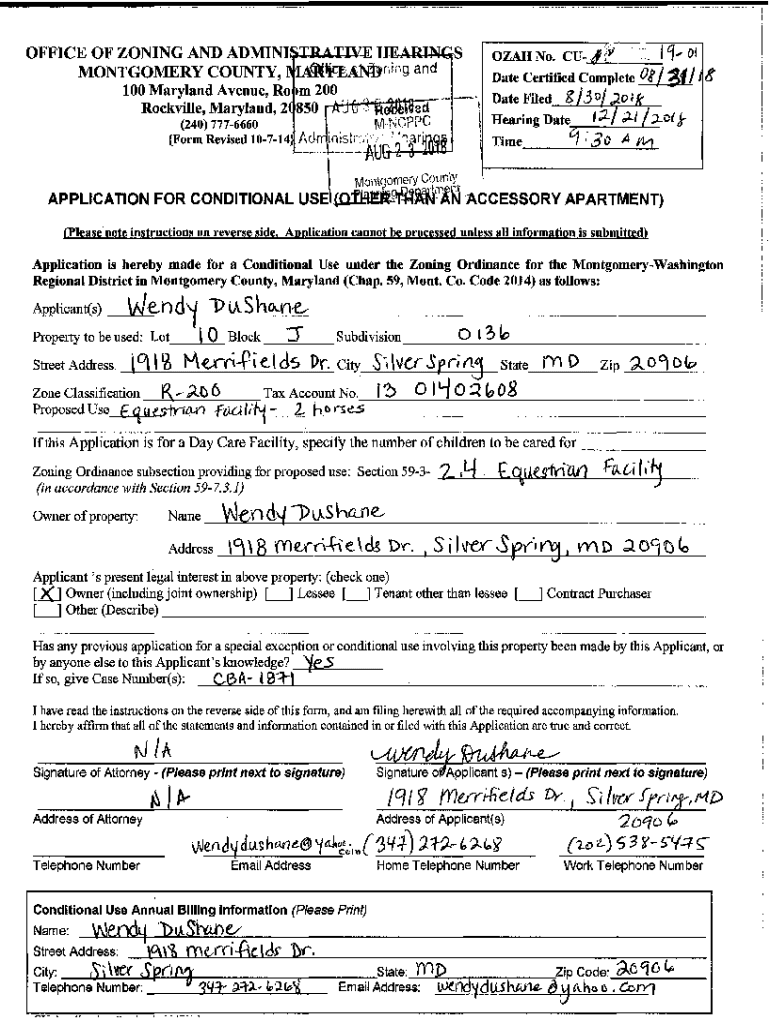 OFFICE OF ZONING AND ADMINISTRATIVE HEARINGS
MONTGOMERY COUNTY, MARYLAND
100 Maryland Avenue, Room 200
Rockville, Maryland, 20850
(240) 777-6660
(Form Revised 10-7-14)
Received
M-NCPPC
AUG 23 2018
Montgomery County
Planning Department
OZAH No. CU- 19-01
Date Certified Complete 08/31/18
Date Filed 8/30/2018
Hearing Date 12/21/2018
Time 9:30 AM
APPLICATION FOR CONDITIONAL USE (OTHER THAN AN ACCESSORY APARTMENT)
(Please note instructions on reverse side. Application cannot be processed unless all information is submitted)
Application is hereby made for a Conditional Use under the Zoning Ordinance for the Montgomery-Washington
Regional District in Montgomery County, Maryland (Chap. 59, Mont. Co. Code 2014) as follows:
Applicant(s) Wendy DuShane
Property to be used: Lot 10 Block J Subdivision 0136
Street Address 1918 Merrifields Dr. City Silver Spring State MD Zip 20906
Zone Classification R-200 Tax Account No. 13 01402608
Proposed Use Equestrian Facility - 2 horses
If this Application is for a Day Care Facility, specify the number of children to be cared for
Zoning Ordinance subsection providing for proposed use: Section 59-3- 2.4. Equestrian Facility
(in accordance with Section 59-7.3.1)
Owner of property: Name Wendy DuShane
Address 1918 Merrifields Dr., Silver Spring, MD 20906
Applicant 's present legal interest in above property: (check one)
[X] Owner (including joint ownership) [ ] Lessee [ ] Tenant other than lessee [ ] Contract Purchaser
[ ] Other (Describe)
Has any previous application for a special exception or conditional use involving this property been made by this Applicant, or
by anyone else to this Applicant's knowledge? Yes
If so, give Case Number(s): CBA-1871
I have read the instructions on the reverse side of this form, and am filing herewith all of the required accompanying information.
I hereby affirm that all of the statements and information contained in or filed with this Application are true and correct.
N/A Wendy Dushane
Signature of Attorney - (Please print next to signature) Signature of Applicant s) – (Please print next to signature)
N/A 1918 Merrifields Dr., Silver Spring, MD
Address of Attorney Address of Applicant(s) 20906
wendydushane@yahoo.com (347) 272-6268 (202) 538-5475
Telephone Number Email Address Home Telephone Number Work Telephone Number
Conditional Use Annual Billing Information (Please Print)
Name: Wendy DuShane
Street Address: 1918 Merrifields Dr.
City: Silver Spring State: MD Zip Code: 20906
Telephone Number: 347-272-6268 Email Address: wendydushane@yahoo.com